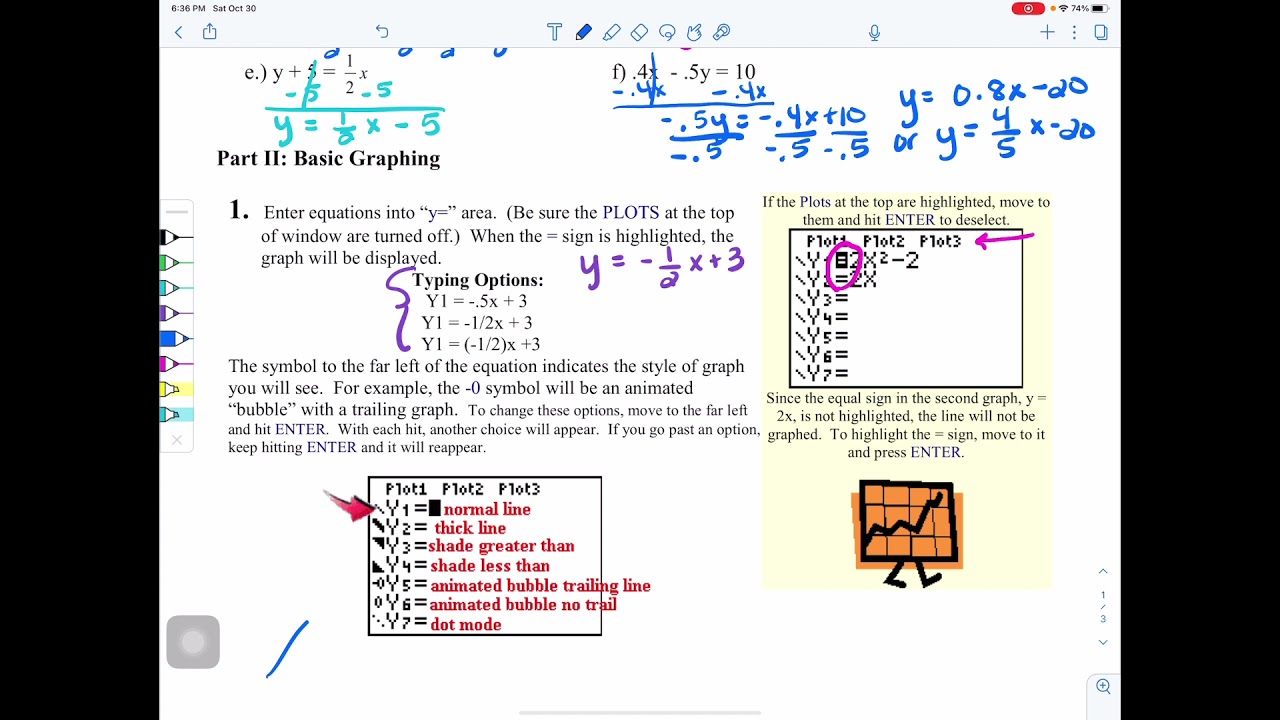 6:36 PM Sat Oct 30
74%
e.) y + 5 = 1/2 x
- 5 - 5
y = 1/2 x - 5
f) .4x - .5y = 10
- .4x - .4x
- .5y = - .4x + 10
- .5 - .5 - .5
y = 0.8x - 20
or y = 4/5 x - 20
Part II: Basic Graphing
1. Enter equations into “y=” area. (Be sure the PLOTS at the top
of window are turned off.) When the = sign is highlighted, the
graph will be displayed.
y = - 1/2 x + 3
Typing Options:
Y1 = -.5x + 3
Y1 = -1/2x + 3
Y1 = (-1/2)x +3
The symbol to the far left of the equation indicates the style of graph
you will see. For example, the -0 symbol will be an animated
“bubble” with a trailing graph. To change these options, move to the far left
and hit ENTER. With each hit, another choice will appear. If you go past an option,
keep hitting ENTER and it will reappear.
Plot1 Plot2 Plot3
Y1= normal line
Y2= thick line
Y3= shade greater than
Y4= shade less than
Y5= animated bubble trailing line
Y6= animated bubble no trail
Y7= dot mode
If the Plots at the top are highlighted, move to
them and hit ENTER to deselect.
Plot1 Plot2 Plot3
Y1=2X²-2
Y2=2X
Y3=
Y4=
Y5=
Y6=
Y7=
Since the equal sign in the second graph, y =
2x, is not highlighted, the line will not be
graphed. To highlight the = sign, move to it
and press ENTER.
1
/
3